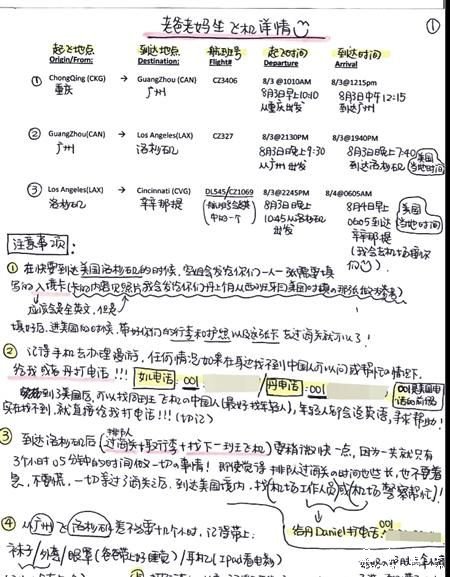 老爸老妈坐飞机详情 ①
起飞地点 到达地点 航班号 起飞时间 到达时间
Origin/From: Destination: Flight# Departure Arrival
① ChongQing (CKG) → GuangZhou (CAN) CZ3406 8/3 @1010AM 8/3@1215pm
重庆 广州 8月3日早上10:10 8月3日中午12:15
从重庆出发 到达广州
② GuangZhou(CAN) → Los Angeles(LAX) CZ327 8/3@2130PM 8/3@1940PM
广州 洛杉矶 8月3日晚上9:30 8月3日晚上7:40
从广州出发 到达洛杉矶
美国当地时间
③ Los Angeles(LAX) → Cincinnati (CVG) DL545/CZ1069 8/3@2245PM 8/4@0605AM
洛杉矶 辛辛那提 8月3日晚上 8月4日早上
10:45从洛杉矶 0605到达
出发 辛辛那提
美国当地时间
(我会去机场接你们)
注意事项:
① 在快要到达美国洛杉矶的时候, 空姐会发给你们一人一张需要填
写的入境卡
应该会是全英文, 但是
填好后, 进美国的时候, 带好你们的行李和护照以及这张卡去过海关就可以了!
② 记得手机去办理漫游, 任何情况如果在身边找不到中国人可以问或帮忙的情况下,
给我或者丹打电话!!! 如电话: 001 丹电话: 001
001是美国电话的前缀
到了美国后, 可以找同班飞机的中国人(最好找年轻人), 年轻人都会说英语, 寻求帮助!
实在找不到, 就直接给我打电话!!! (切记)
③ 到达洛杉矶后 (过海关+取行李+找下一班飞机) 要稍微快一点, 因为一共就只有
排队
3个小时05分钟的时间做一切的事情! 即使觉得排队过海关的时间也些长, 也不要着
急, 不要慌, 一切等过海关之后, 到达美国境内, 找(机场工作人员或机场警察帮忙)!
给丹Daniel打电话: 001
④ 从广州飞洛杉矶差不多要十几个小时, 记得带上:
袜子/外套/眼罩(爸爸带上好睡觉)/耳机(Ipad看电影)